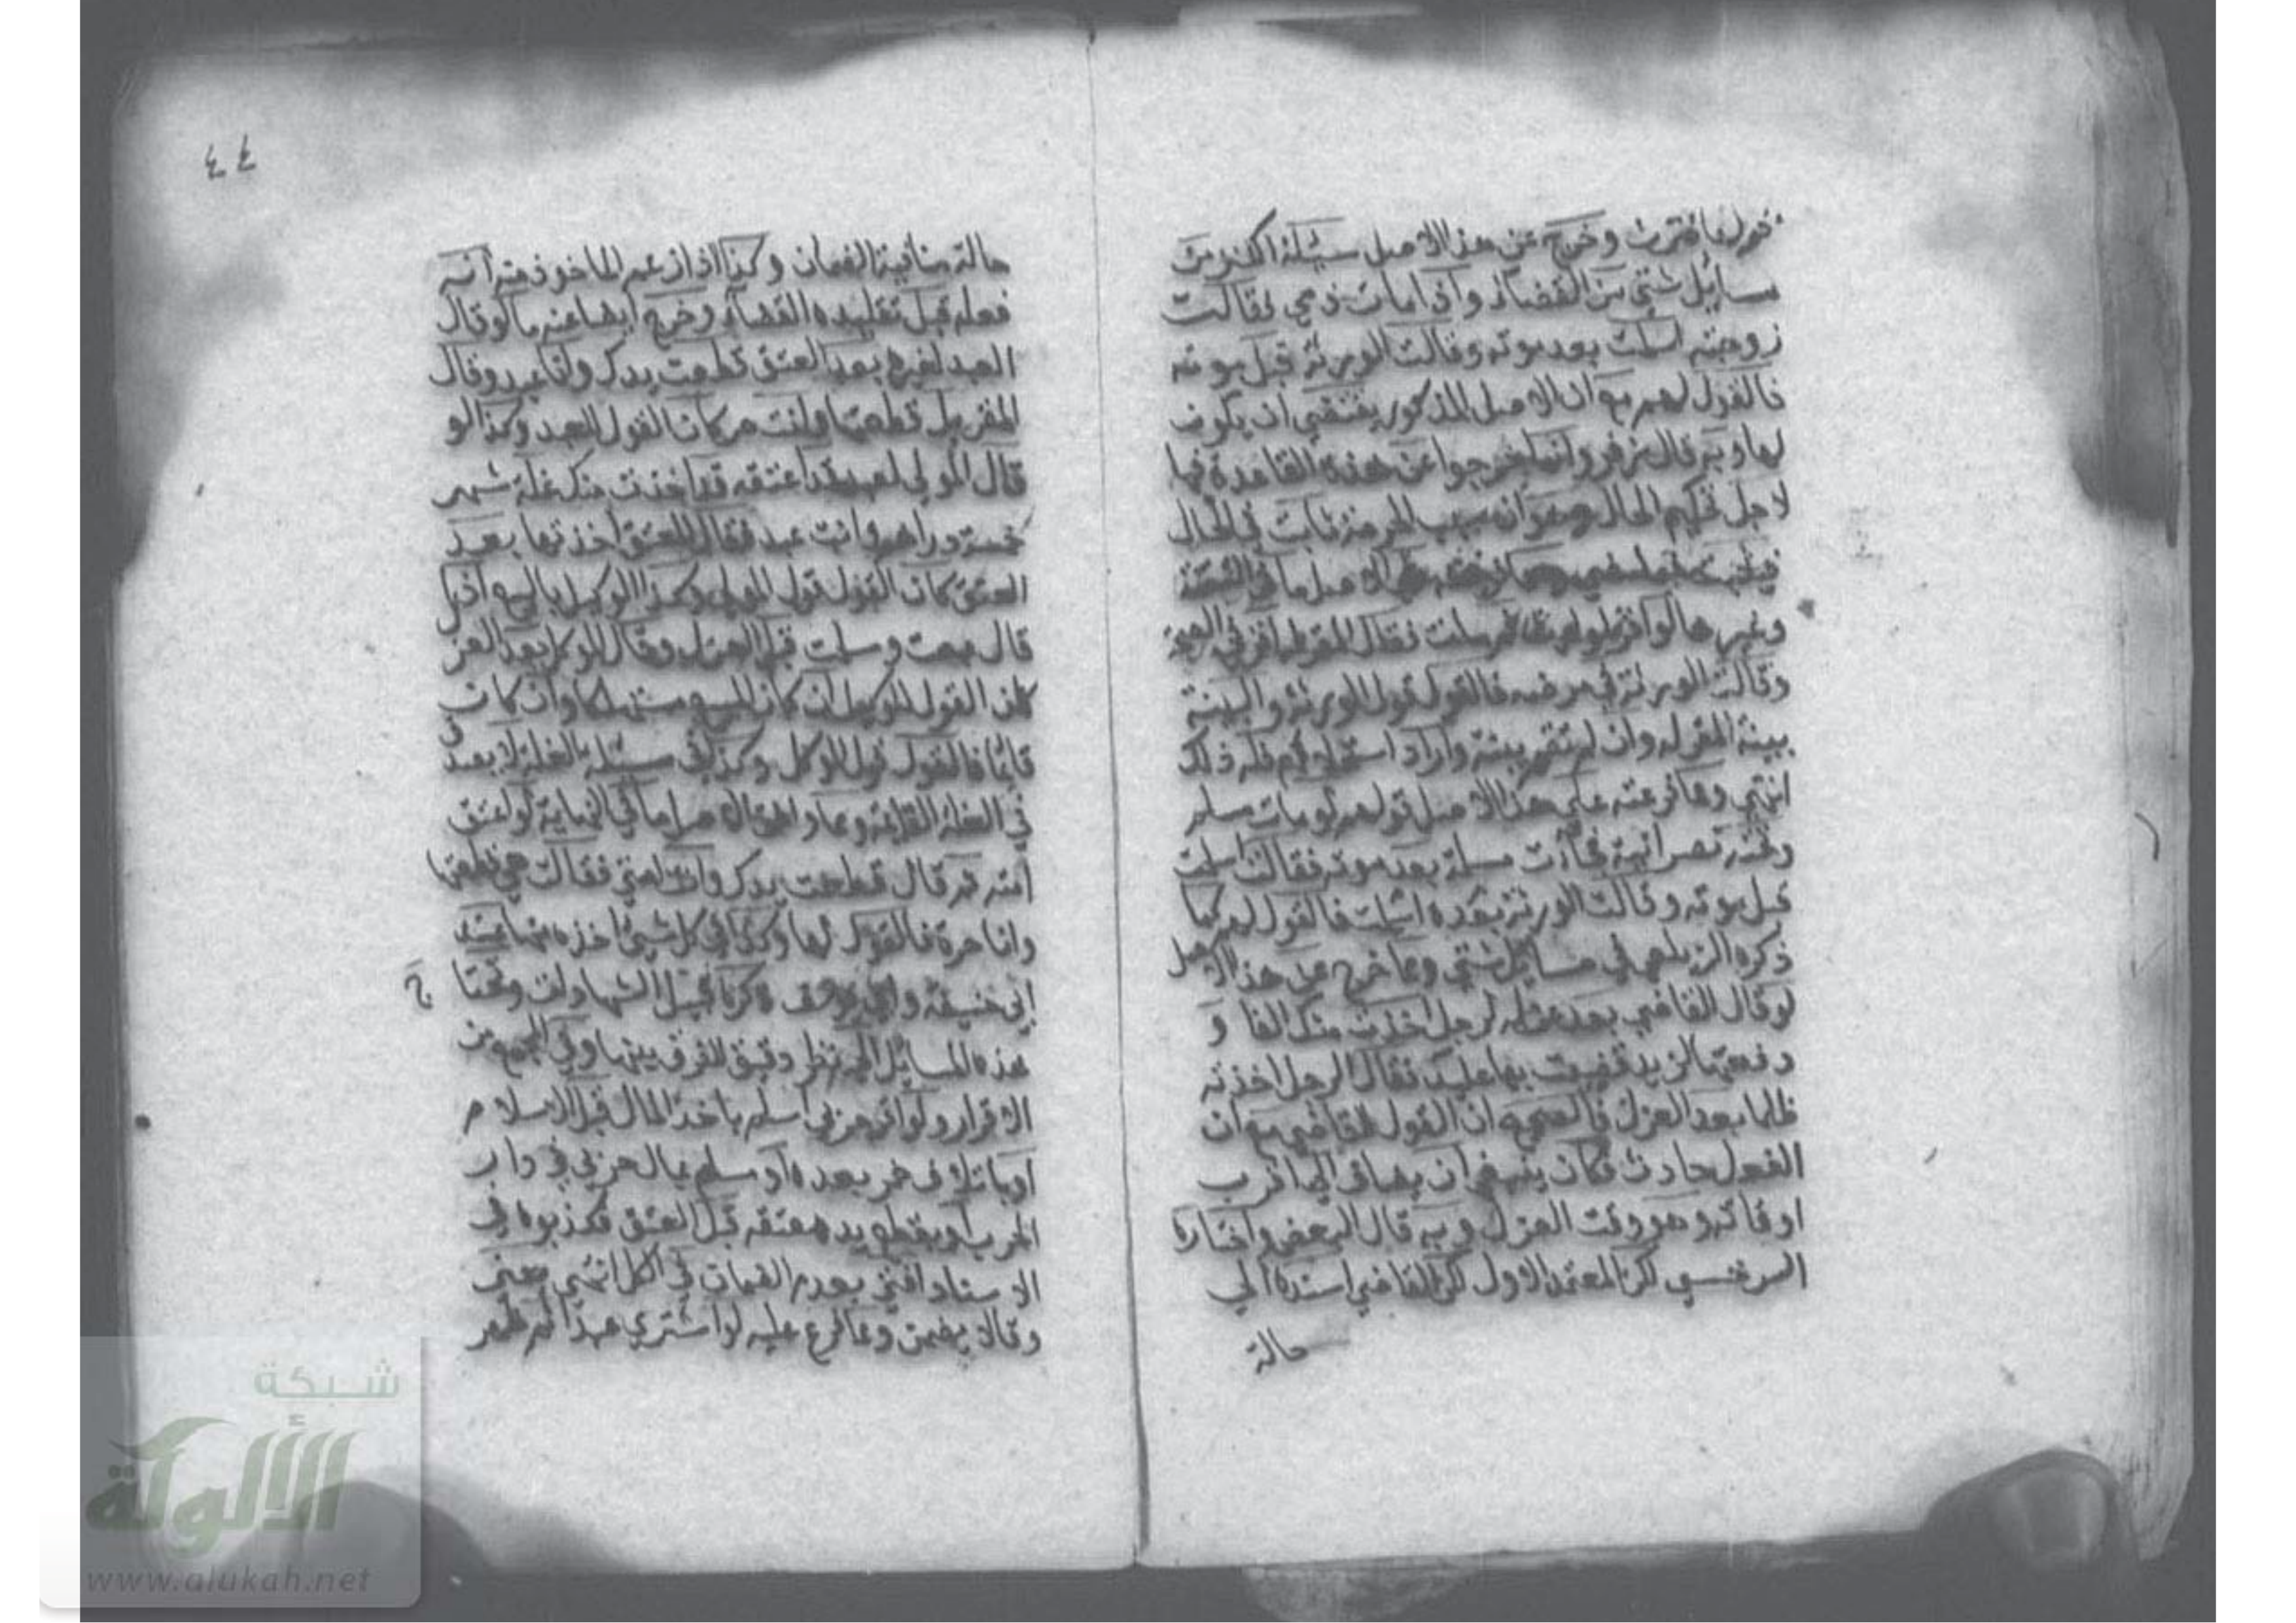 وخرج عن هذا الاصل مسئلة الكنز من
مسايل شتي من القضاء واذا مات ذمي فقالت
زوجته اسلمت بعد موته وقالت الورثة قبل موته
فالقول لهم مع ان الاصل المذكور يقتضي ان يكون
لها وبه قال زفر وانما خرجوا عن هذه القاعدة فيها
لاجل تحكيم الحال وهو ان سبب الحرمة ثابت في الحال
فيثبت فيما مضي ومما فرعته على الاصل ما في اليتيمة
وغيرها لو اقر لوارث ثم مات فقال المقر له اقر في الصحة
وقالت الورثة في مرضه فالقول قول الورثة والبينة
بينة المقر له وان لم تقم بينة واراد استحلافهم فله ذلك
انتهي ومما فرعته علي هذا الاصل قولهم لو مات مسلم
وتحته نصرانية فجاءت مسلمة بعد موته فقالت اسلمت
قبل موته وقالت الورثة بعده اسلمت فالقول لهم كما
ذكره الزيلعي في مسايل شتي ومما خرج عن هذا الاصل
لو قال القاضي بعد عزله لرجل اخذت منك الفا و
دفعتها لزيد قضيت بها عليك فقال الرجل اخذته
ظلما بعد العزل فالصحيح ان القول للقاضي مع ان
الفعل حادث فكان ينبغي ان يضاف الي اقرب
اوقاته وهو وقت العزل وبه قال البعض واختاره
السرخسي لكن المعتمد الاول لكن القاضي اسنده الي
حالة
٤٤
حالة منافية الضمان وكذا اذا زعم الماخوذ منه انه
فعله قبل تقليده القضاء وخرج ايضا عنه ما لو قال
العبد لغيره بعد العتق قطعت يدك وانا عبد وقال
المقر له بل قطعتها وانت حر كان القول للعبد وكذا لو
قال المولي لعبد قد اعتقه قد اخذت منك غلة شهر
خمسة دراهم وانت عبد فقال المعتق اخذتها بعد
العتق كان القول قول المولي وكذا الوكيل بالبيع اذا
قال بعت وسلمت قبل العزل وقال الموكل بعد العزل
كان القول للوكيل ان كان المبيع مستهلكا وان كان
قائما فالقول قول الموكل وكذا في مسئلة الغلة لا يصدق
في الغلة القائمة ومما وافق الاصل ما في النهاية لو اعتق
امته ثم قال قطعت يدك وانت امتي فقالت هي قطعتها
وانا حرة فالقول لها وكذا في كل شيء اخذه منها عند
ابي حنيفة وابي يوسف ذكره قبيل الشهادات وتحتاج
هذه المسائل الي نظر دقيق للفرق بينها وفي المجمع من
الاقرار ولو اقر حربي اسلم باخذ المال قبل الاسلام
او باتلاف خمر بعده او مسلم بمال حربي في دار
الحرب او بقطع يد معتقه قبل العتق فكذبوه في
الاسناد افتي بعدم الضمان في الكل انتهي يعني
وقالا يضمن ومما فرع عليه لو اشتري عبدا ثم ظهر
شبكة
الألوكة
www.alukah.net